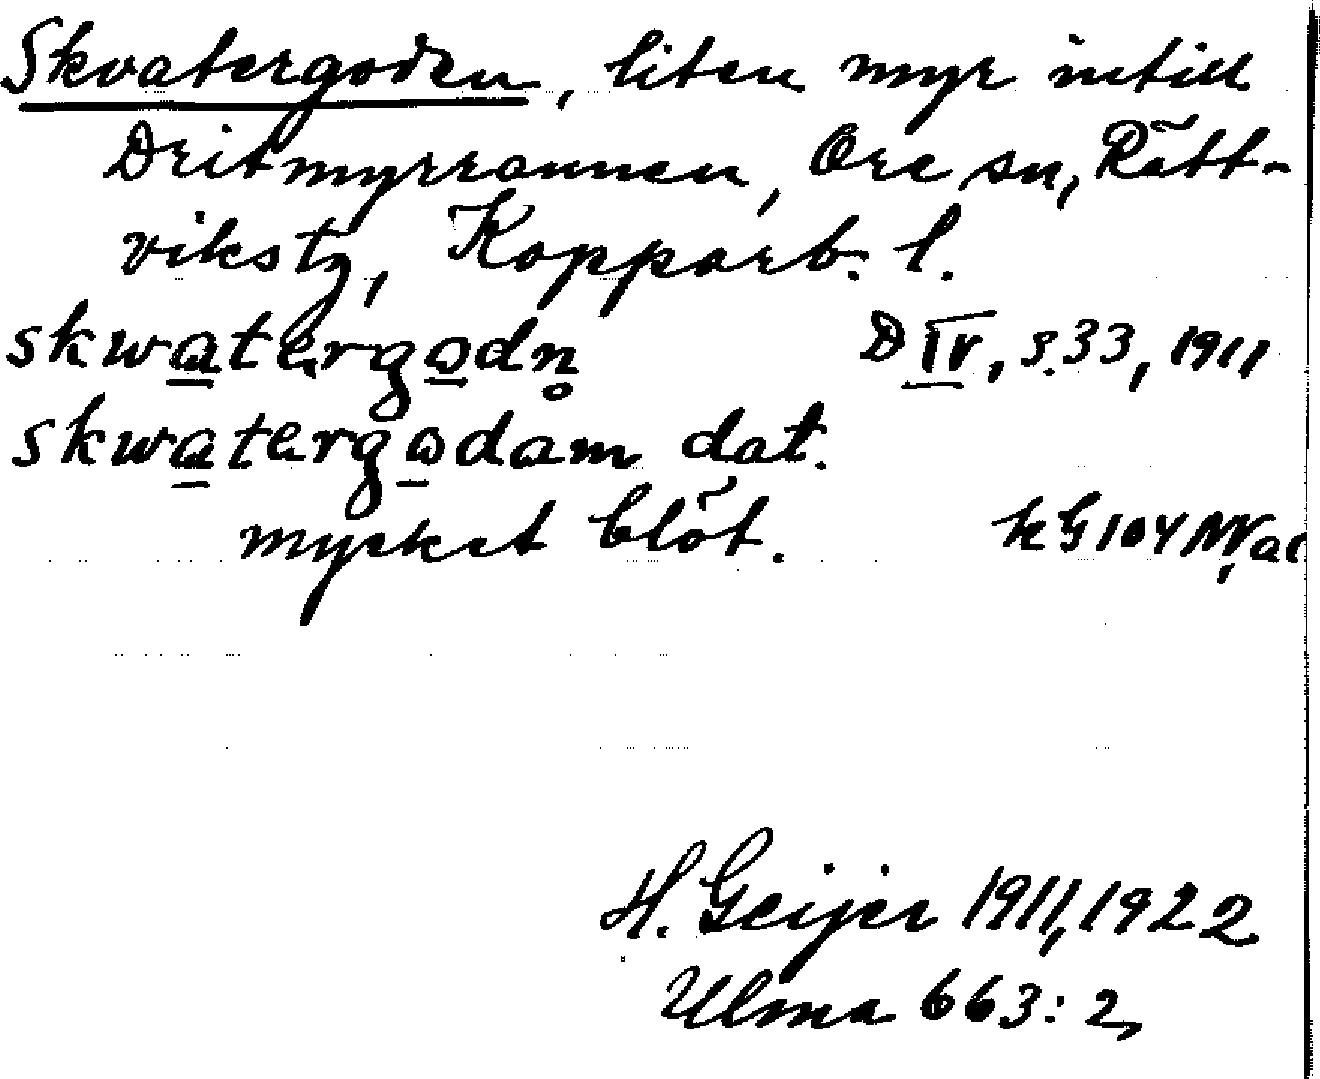 Skvatergoden, liten myr intill
Dritmyrrannen, Ore sn, Rätt-
vikstg, Kopparb. l.
skwatergodn̥ D IV, s. 33, 1911
skwatergodam dat.
mycket blöt. kG104
H. Geijer 1911, 1922
Ulma 663: 2,